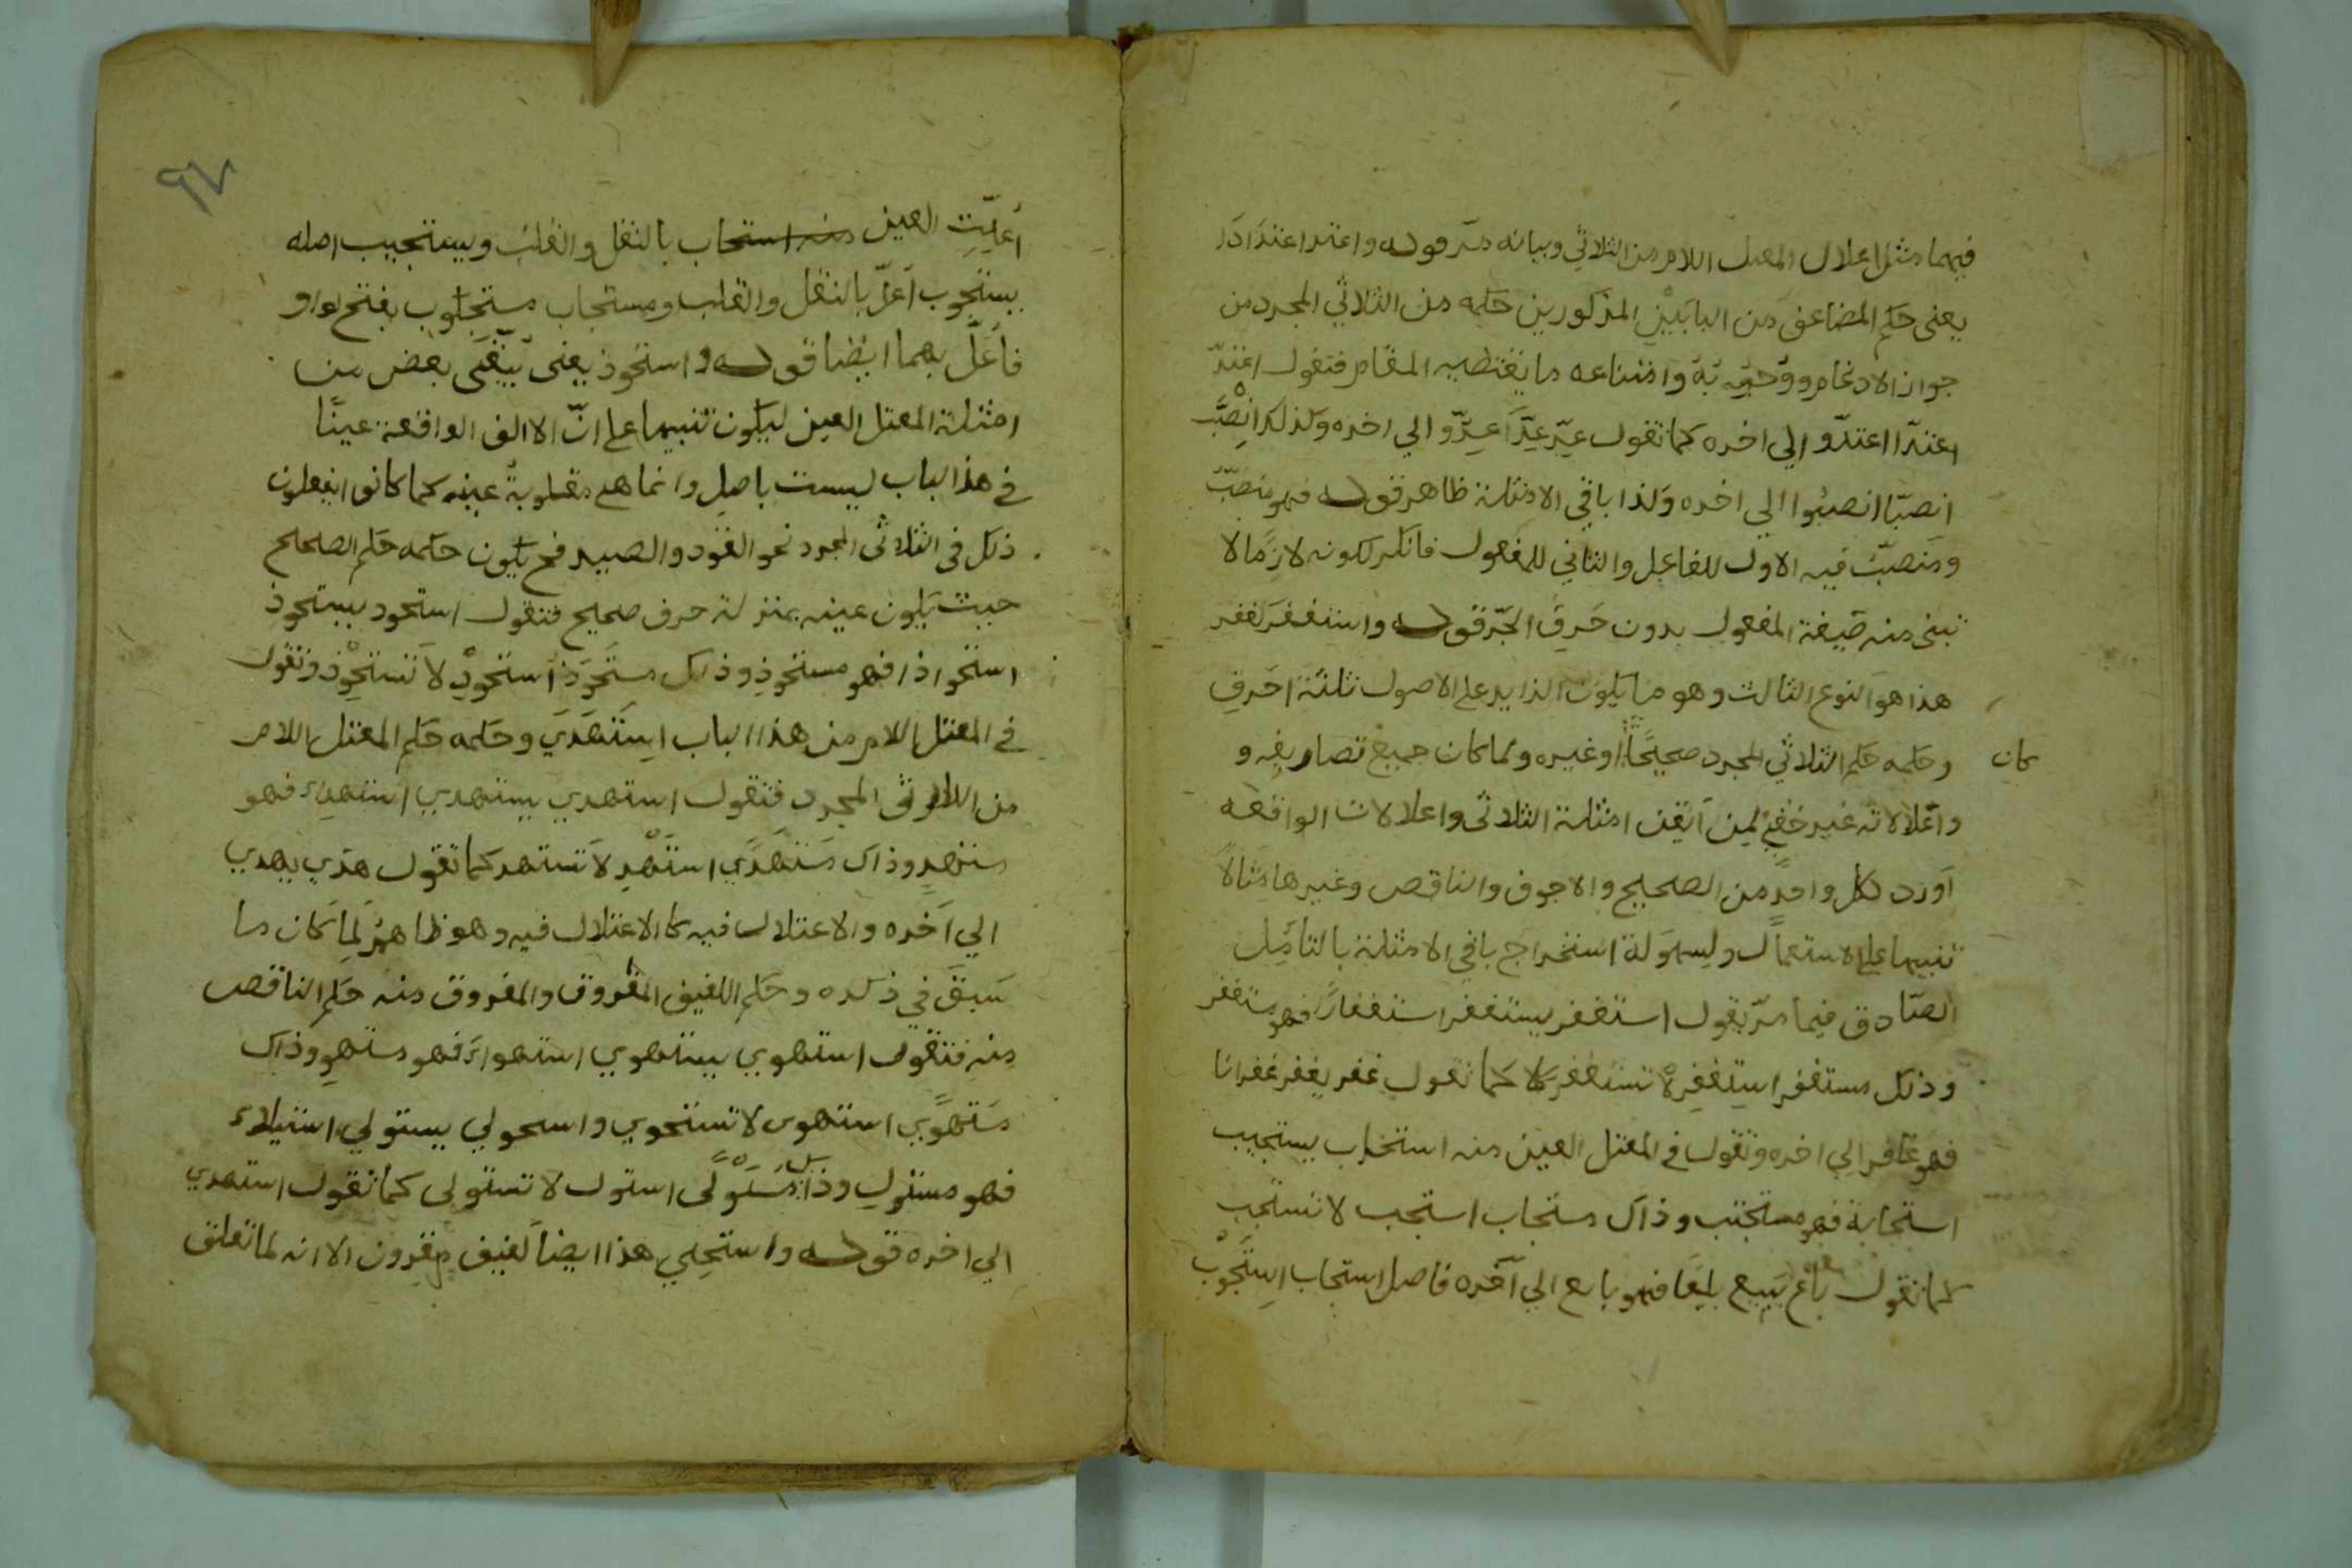 فيهما مثل اعلال المعتل اللام من الثلاثي وبيانه مرّ قوله واعتد اعتدادًا
يعني حكم المضاعف من البابَيْنِ المذكورين حكمه من الثلاثي المجرد من
جواز الادغام ووجوبه وامتناعه ما يقتضيه المقام فتقول اعتدّ
اعتدّا اعتدّوا الي اخره كما تقول عِدّ عِدّا عِدّوا الي اخره وكذلك انْصَبَّ
انصبّا انصبّوا الي اخره وكذا باقي الامثلة ظاهر قوله فهو منصَبّ
ومُنصبّ فيه الاول للفاعل والثاني للمفعول فانكر لكونه لازمًا لا
تبنى منه صيغة المفعول بدون حَرفِ الجَرّ قوله واستغفَرَ يغفر
هذا هوَ النوع الثالث وهو ما يكون الزايد على الاصول ثلثة احَرفٍ
وحكمه حكم الثلاثي المجرد صحيحًا اوغيره ولما كان جميع تصاريفِه و
كان
واعلالاته غير خفيٍّ لمِن اتقن امثلة الثلاثي واعلالات الواقعه
آورد لكل واحدٍ من الصحيح والاجوف والناقص وغيرها مثالاً
تنبيها على الاستعمال ولسِهوَلة استخراج باقي الامثلة بالتامّل
الصّادق فيما مرّ تقول استغفر يستغفر استغفارًا فهو مستغفر
وذلك مستغفر استِغفِرْ لا تستغفر كما تقول غفر يغفر غفرانا
فهو غافر الي اخره وتقول في المعتل العين منه استجاب يستجيب
استجابة فهو مستجيب وذاك مستجاب استجب لا تستجب
كما تقول باع يَبيع بيعًا فهو بايع الي آخره فاصل استجاب اِستَجْوَب
٩٧
أعلّتِ العين منه استجاب بالنقل والقلب ويستجيب اصله
يستجوب أعلّ بالنقل والقلب ومستجاب مستجوب بفتح الواو
فاعَلّ بهما ايضا قوله واستحوذ يعنى يبقَى بعض من
امثلة المعتل العين ليكون تنبيها على انّ الالف الواقعة عينًا
في هذا الباب ليست باصلٍ وانما هي مقلوبةٌ عينه كما كانوا يفعلون
ذلك في الثلاثي المجرد نحو القود والصيد فح يكون حكمه حكم الصحيح
حيث يكون عينه بمنزلة حرف صحيح فتقول استحوذ يستحوذ
استحواذا فهو مستحوذ وذلك مستحَوَذ استحوِذْ لا تستحْوِذ وتقول
في المعتل اللام من هذا الباب اِستَهَدَي وحكمه حكم المعتل اللام
من الثلاثي المجرد فتقول استهدي يستهدي استهداء فهو
مستهدٍ وذاك مستهدَي استهْدِ لا تستهد كما تقول هدَي يهدي
الي آخره والاعتلال فيه كالاعتلال فيه وهو ظاهرٌ لِمَا كان ما
سَبقَ في ذكره وحكم اللفيف المقرون والمفروق منه حكم الناقص
مِنه فتقول استهوي يستهوي استهواء فهو مستهوٍ وذاك
مستهوَي استهوى لا تستهوي واستولي يستولي استيلاء
فهو مستولٍ وذاك مستولًى استول لا تستولى كما تقول استهدي
الي اخره قوله واستحيي هذا ايضا لفيف مقرون الا انه لما تعلق